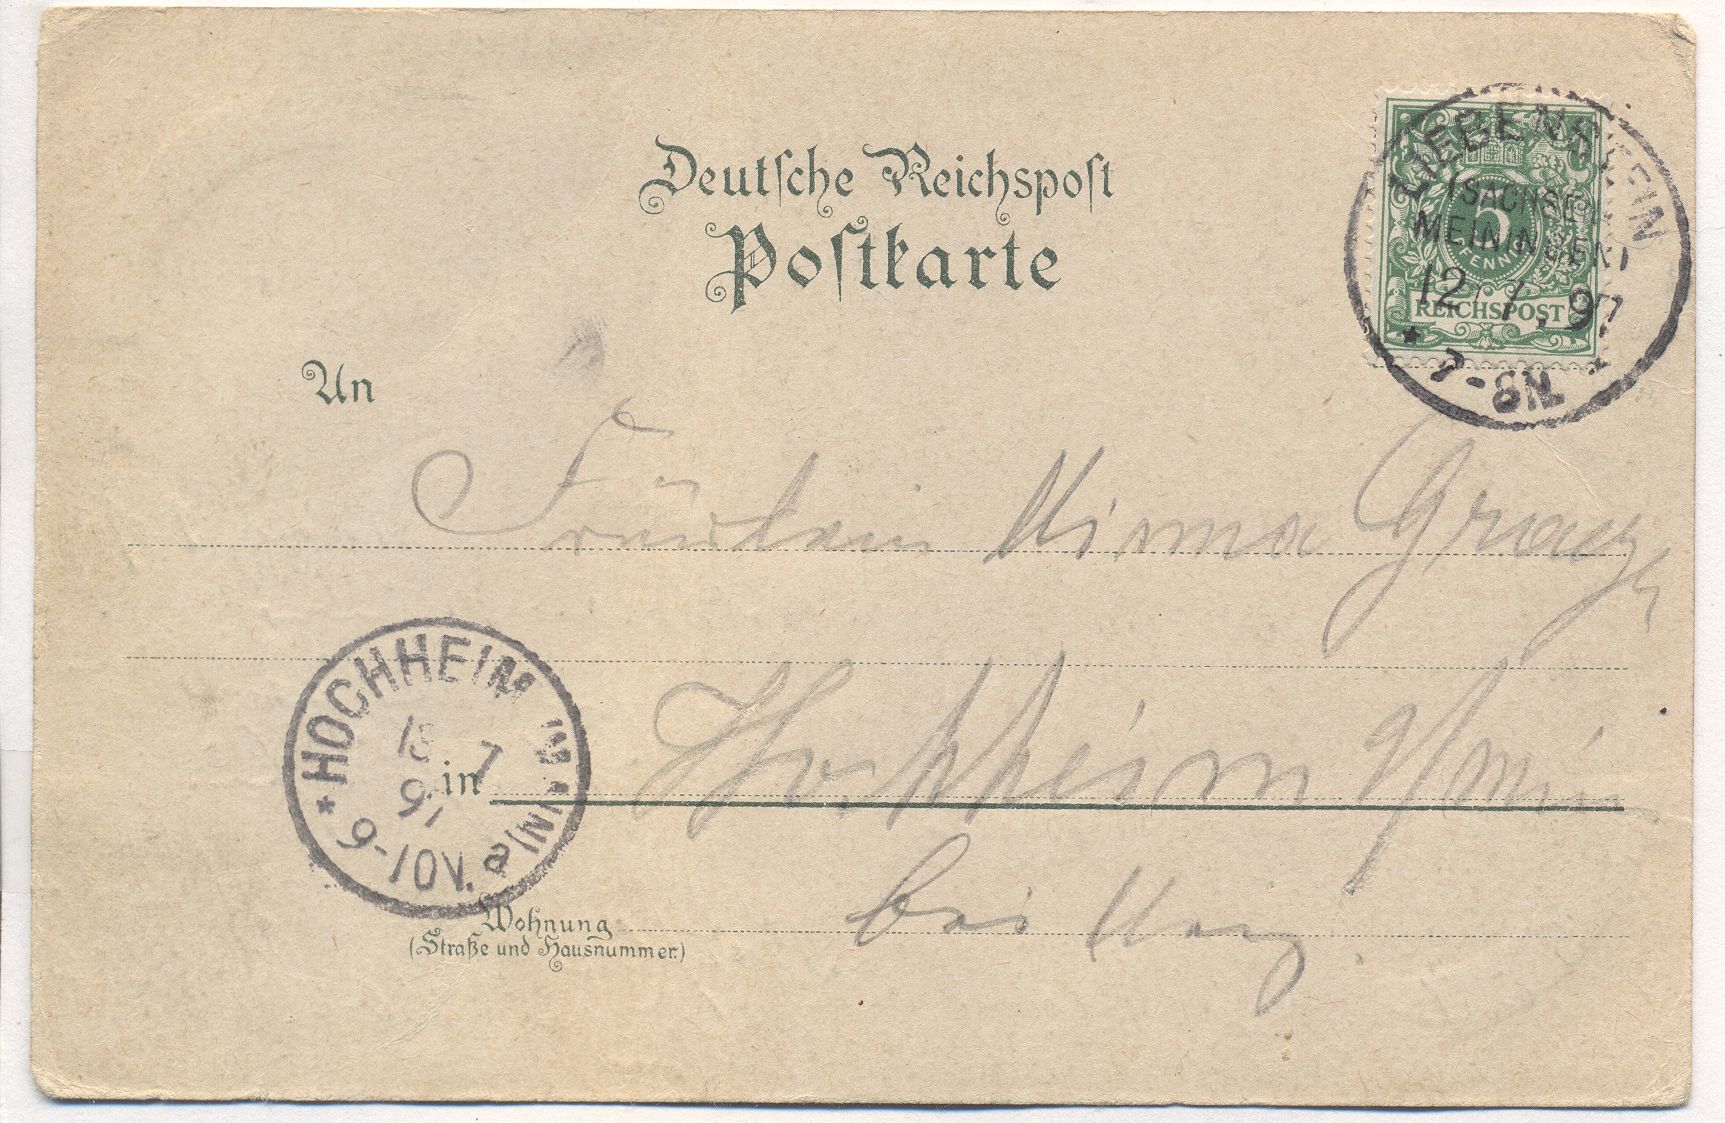 Deutsche Reichspost
Postkarte
LIEBENSTEIN
(SACHSEN
MEININGEN)
12. 7. 97
* 7-8N. *
5
PFENNIG
REICHSPOST
An
Fräulein
Hochheim a/Main
in
bei
HOCHHEIM
13 7
97
* 9-10V. a
Wohnung
(Straße und Hausnummer.)